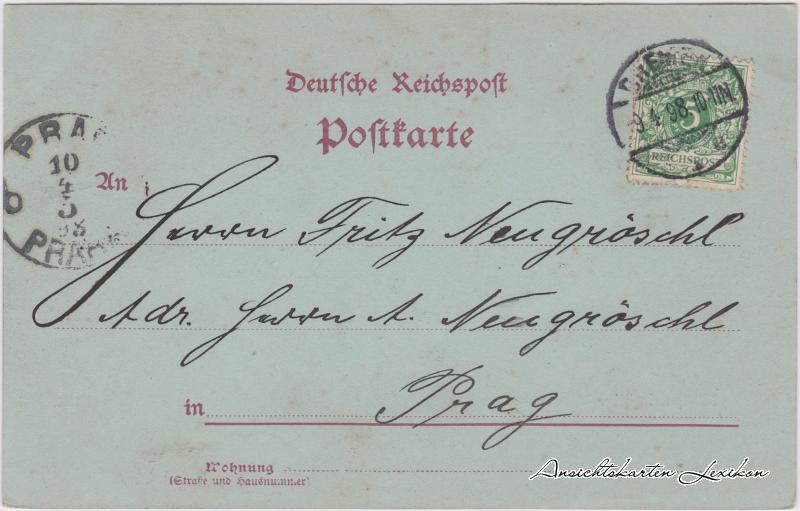 Deutsche Reichspost
Postkarte
9.4.98.10-11N
5
REICHSPOST
PRAG
10
4
5
98
PRAHA
An
Herrn Fritz Neugröschl
Adr. Herrn A. Neugröschl
in Prag
Wohnung
(Straße und Hausnummer)
Ansichtskarten Lexikon